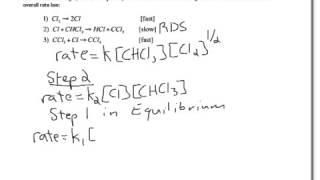 overall rate law:
1) Cl₂ → 2Cl [fast]
2) Cl + CHCl₃ → HCl + CCl₃ [slow] RDS
3) CCl₃ + Cl → CCl₄ [fast]
rate = k [CHCl₃][Cl₂]^1/2
Step 2
rate = k₂[Cl][CHCl₃]
Step 1 in Equilibrium
rate = k₁[